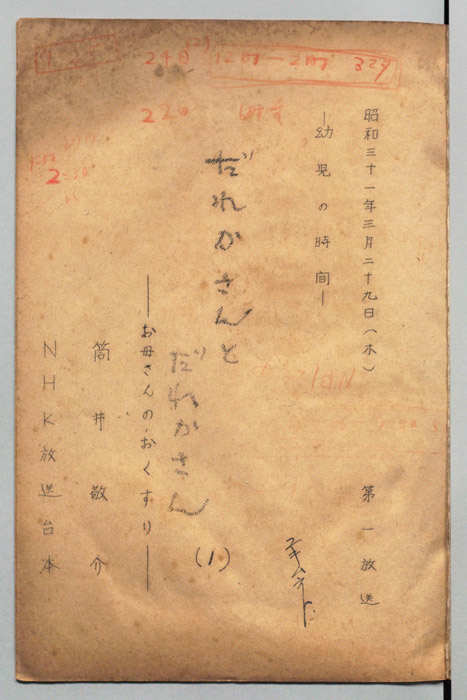 昭和三十一年三月二十九日(木) 第一放送
―幼児の時間―
だれかさんと
だれかさん
(1)
――お母さんの・おくすり――
筒井敬介
NHK放送台本
24日 12時―2時 329
22日